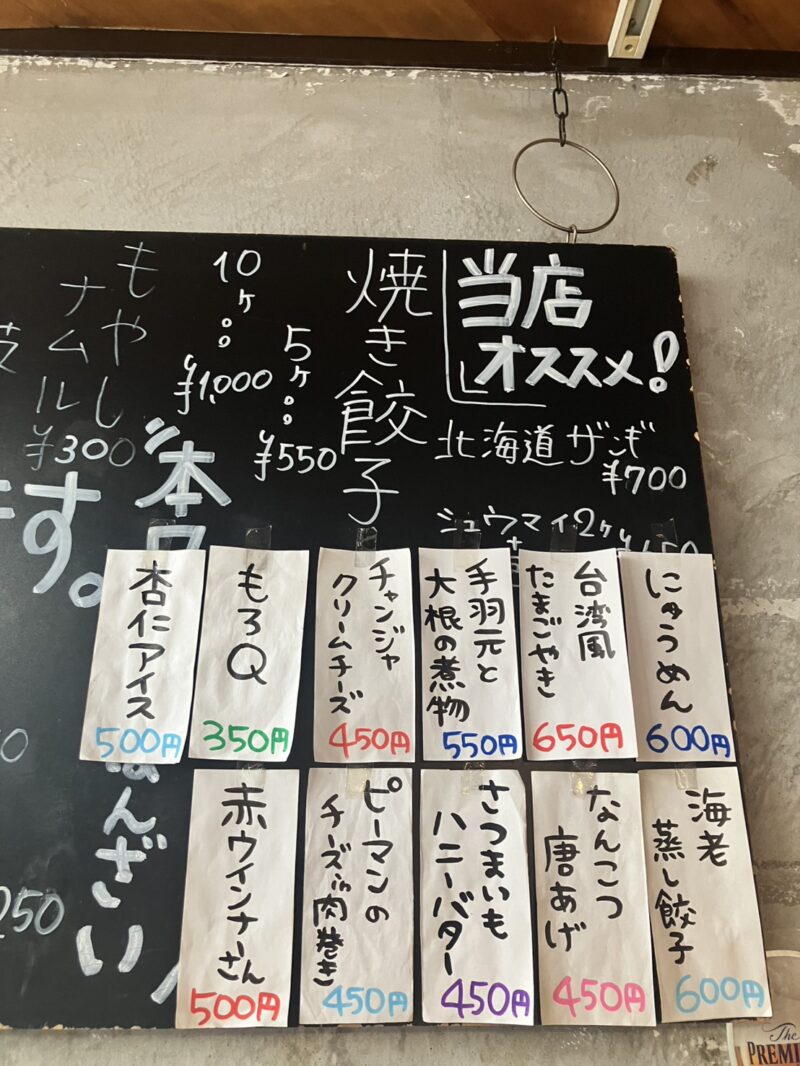 当店
オススメ!
北海道ザンギ
¥700
シュウマイ2ケ
焼き餃子
5ケ。。
¥550
10ケ。。
¥1,000
もやし
ナムル
¥300
本日
す。
にゅうめん
600円
台湾風
たまごやき
650円
手羽元と
大根の煮物
550円
チャンジャ
クリームチーズ
450円
もろQ
350円
杏仁アイス
500円
海老
蒸し餃子
600円
なんこつ
唐あげ
450円
さつまいも
ハニーバター
450円
ピーマンの
チーズin肉巻き
450円
赤ウインナーさん
500円
なんざい
250
The
PREMI